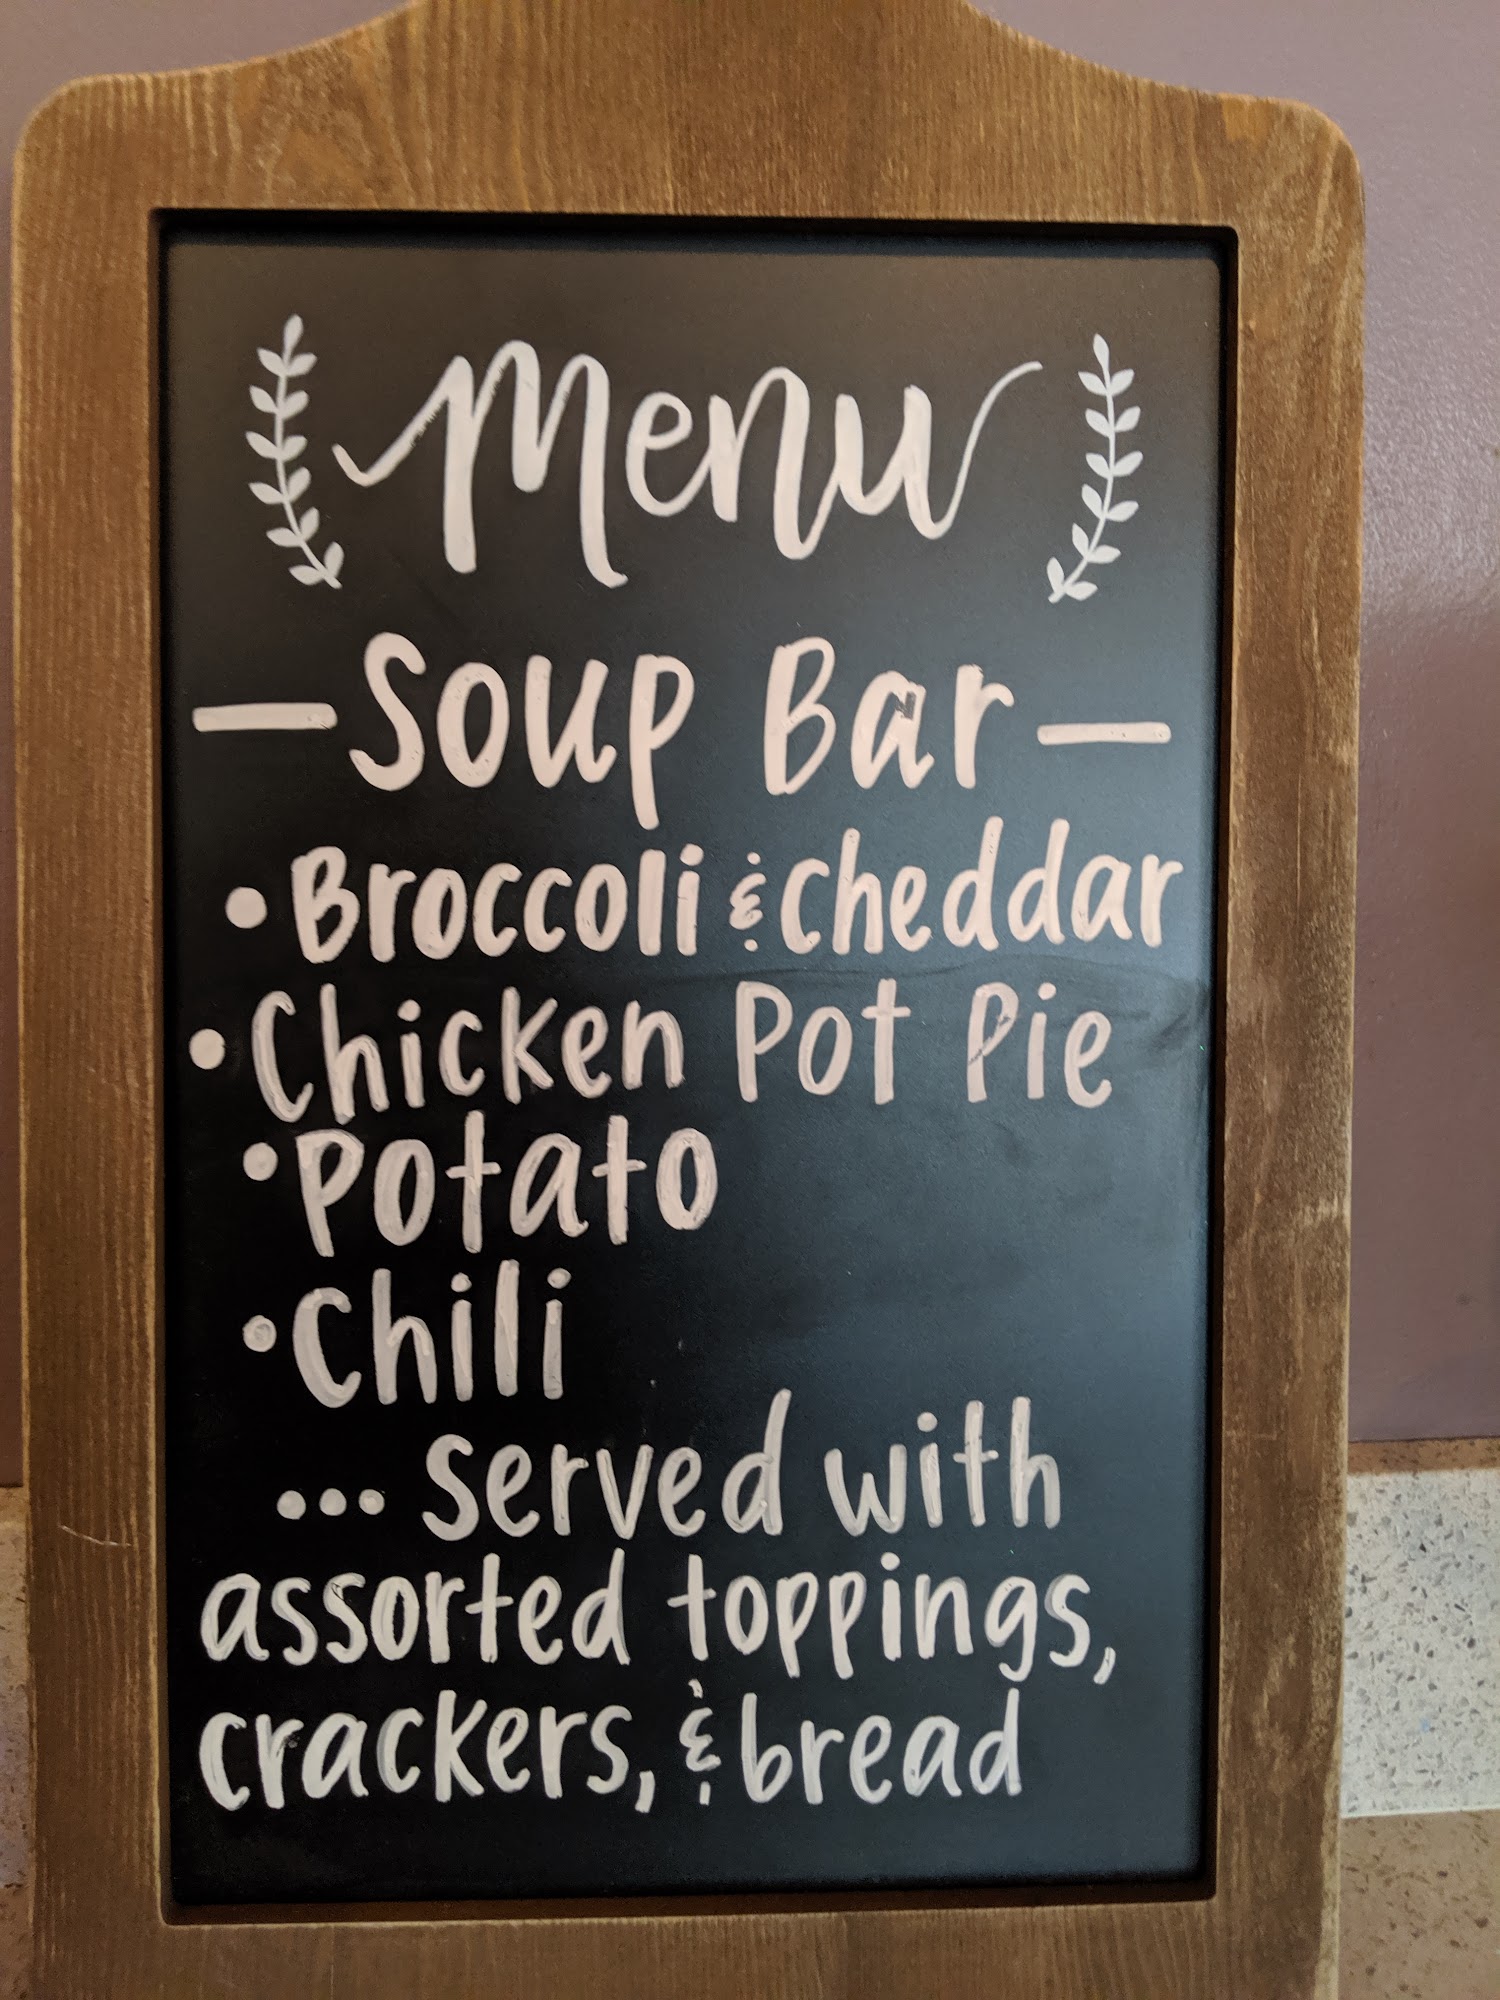 Menu
— Soup Bar —
• Broccoli & Cheddar
• Chicken Pot Pie
• Potato
• Chili
... served with
assorted toppings,
crackers, & bread